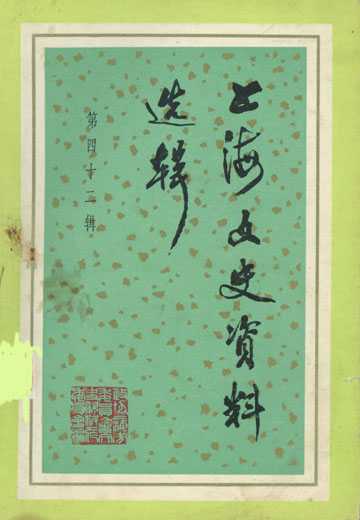 上海文史资料
选辑
第四十二辑